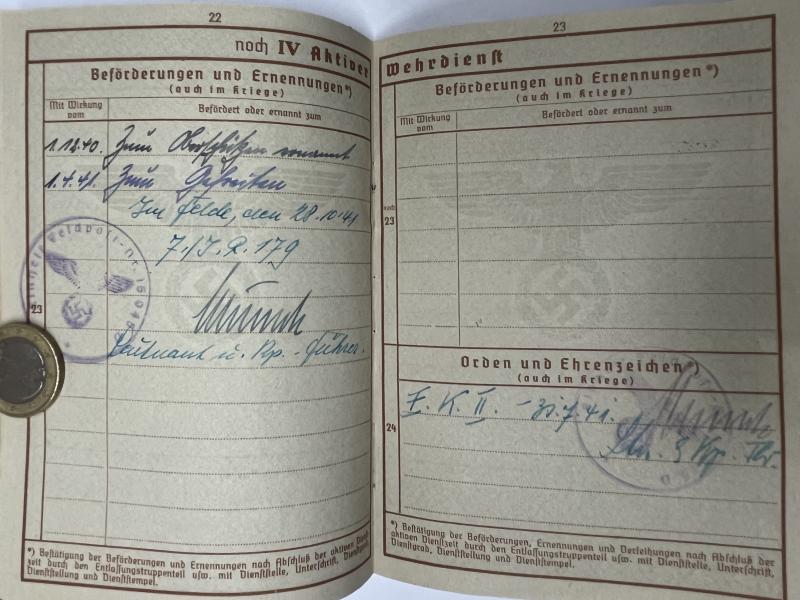 22
noch IV Aktiver
Beförderungen und Ernennungen*)
(auch im Kriege)
Mit Wirkung vom
Befördert oder ernannt zum
1.12.40. Zum Oberschützen ernannt
1.4.41. Zum Gefreiten
Im Felde, den 28.10.41
7./I.R. 179
23
Leutnant u. Kp.-Führer.
Feldpost-Nr.
*) Bestätigung der Beförderungen und Ernennungen nach Abschluß der aktiven Dienst-
zeit durch den Entlassungstruppenteil usw. mit Dienststelle, Unterschrift, Dienstgrad,
Dienststellung und Dienststempel.
23
Wehrdienst
Beförderungen und Ernennungen*)
(auch im Kriege)
Mit Wirkung vom
Befördert oder ernannt zum
noch
23
Orden und Ehrenzeichen*)
(auch im Kriege)
24
E. K. II.
*) Bestätigung der Beförderungen, Ernennungen und Verleihungen nach Abschluß der
aktiven Dienstzeit durch den Entlassungstruppenteil usw. mit Dienststelle, Unterschrift,
Dienstgrad, Dienststellung und Dienststempel.